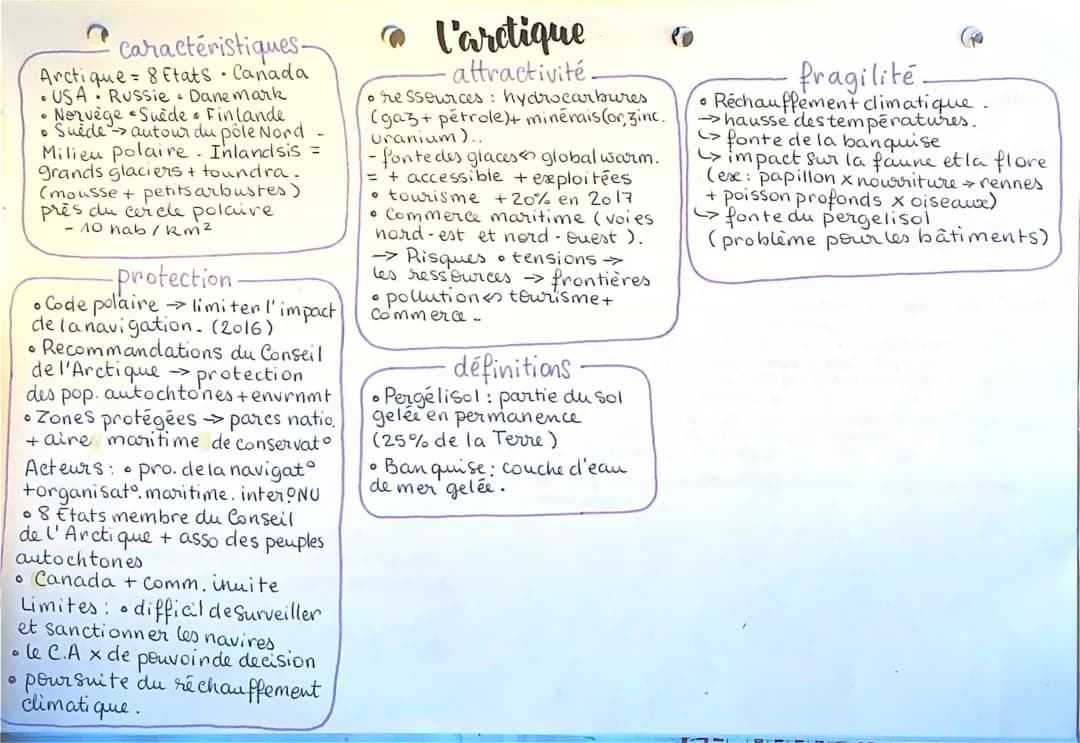 l'arctique
caractéristiques
Arctique = 8 Etats • Canada
• USA • Russie • Danemark
• Norvège • Suède • Finlande
• Suède → autour du pôle Nord -
Milieu polaire. Inlandsis =
grands glaciers + toundra.
(mousse + petits arbustes)
près du cercle polaire
- 10 hab / km²
protection
• Code polaire → limiter l'impact
de la navigation. (2016)
• Recommandations du Conseil
de l'Arctique → protection
des pop. autochtones + envrnmt
• Zones protégées → parcs natio.
+ aire maritime de conservat°
Acteurs : • pro. de la navigat°
+ organisat°. maritime. inter ONU
• 8 Etats membre du Conseil
de l'Arctique + asso des peuples
autochtones
• Canada + comm. inuite
Limites : • difficil de surveiller
et sanctionner les navires
• le C.A x de pouvoir de decision
• poursuite du réchauffement
climatique.
attractivité
• ressources : hydrocarbures
(gaz + pétrole) + minérais (or, zinc.
uranium)..
- fonte des glaces ⇔ global warm.
= + accessible + exploitées
• tourisme +20% en 2017
• Commerce maritime (voies
nord-est et nord-ouest).
→ Risques • tensions →
les ressources → frontières
• pollution ⇔ tourisme +
commerce ..
définitions
• Pergélisol : partie du sol
gelée en permanence
(25% de la Terre)
• Banquise : couche d'eau
de mer gelée.
fragilité
• Réchauffement climatique.
→ hausse des températures.
↳ fonte de la banquise
↳ impact sur la faune et la flore
(ex : papillon x nourriture → rennes
+ poisson profonds x oiseaux)
↳ fonte du pergelisol
(problème pour les bâtiments)